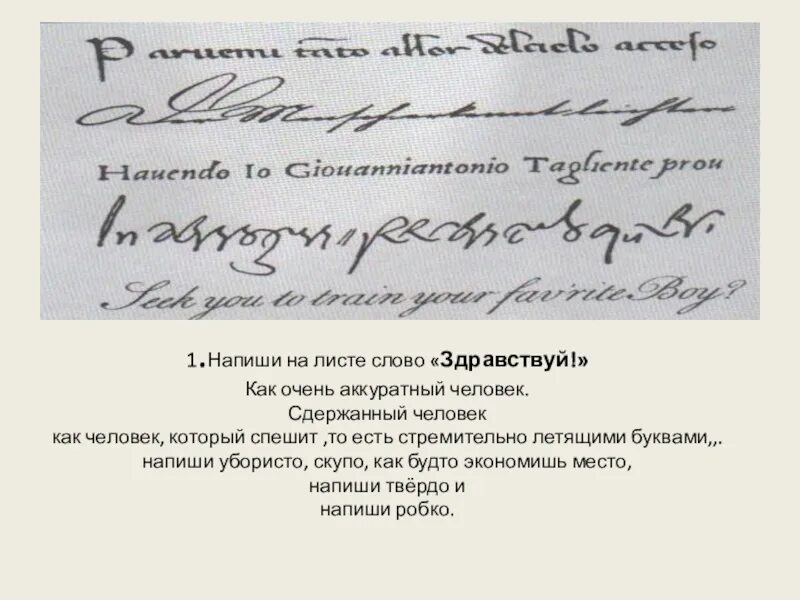 Paruemi tāto allor del cielo acceso
Hauendo Io Giouanniantonio Tagliente prou
Seek you to train your fav'rite Boy?
1.Напиши на листе слово «Здравствуй!»
Как очень аккуратный человек.
Сдержанный человек
как человек, который спешит ,то есть стремительно летящими буквами,,.
напиши убористо, скупо, как будто экономишь место,
напиши твёрдо и
напиши робко.